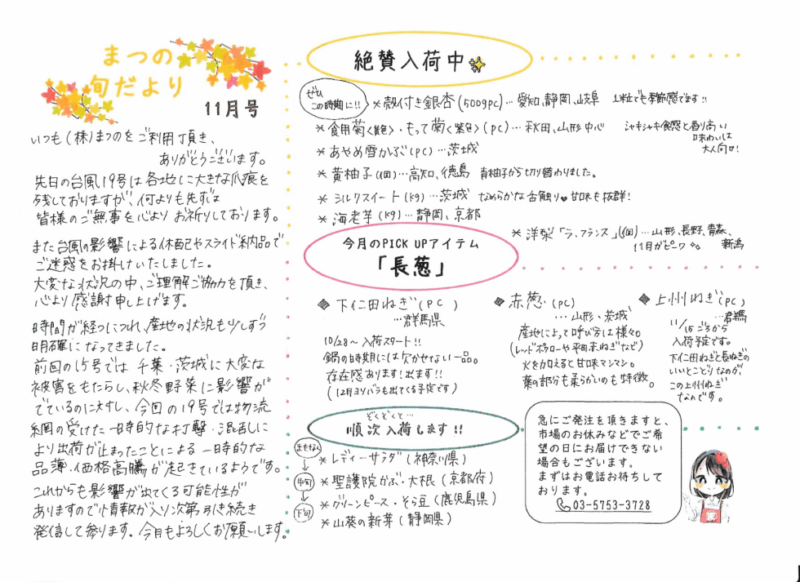 まつの
旬だより
11月号
いつも(株)まつのをご利用頂き、
ありがとうございます。
先日の台風19号は各地に大きな爪痕を
残しておりますが、何よりも先ずは
皆様のご無事を心よりお祈りしております。
また台風の影響による休配やスライド納品で
ご迷惑をお掛けいたしました。
大変な状況の中、ご理解ご協力を頂き、
心より感謝申し上げます。
時間が経つにつれ、産地の状況も少しずつ
明確になってきました。
前回の15号では千葉・茨城に大変な
被害をもたらし、秋冬野菜に影響が
でているのに対し、今回の19号では物流
網の受けた一時的な打撃・混乱に
より出荷が止まったことによる一時的な
品薄・価格高騰が起きているようです。
これからも影響が出てくる可能性が
ありますので情報が入り次第引き続き
発信して参ります。今月もよろしくお願いします。
絶賛入荷中
ぜひ
この時期に!!
*殻付き銀杏(500gPC)…愛知、静岡、岐阜 1粒でも季節感でます!!
*食用菊<黄色>・もって菊<紫色>(PC)…秋田、山形中心 シャキシャキ食感と香り高い
味わいは
大人向け!
*あやめ雪かぶ(PC)…茨城
*黄柚子(1個)…高知、徳島 青柚子から切り替わりました。
*シルクスイート(kg)…茨城 なめらかな舌触り♥甘味も抜群!
*海老芋(kg)…静岡、京都
*洋梨「ラ・フランス」(1個)…山形、長野、青森、
新潟
11月がピーク
今月のPICK UPアイテム
「長葱」
◆下仁田ねぎ(PC)
…群馬県
10/28〜入荷スタート!!
鍋の時期には欠かせない一品。
存在感あります!出ます!!
(12月よりバラも出てくる予定です)
◆赤葱(PC)
…山形、茨城
産地によって呼び方は様々
(レッドポワローや平田赤ねぎなど)
火を加えると甘味マシマシ。
葉の部分も柔らかいのも特徴。
◆上州ねぎ(PC)
…群馬
11/15ごろから
入荷予定です。
下仁田ねぎと長ねぎの
いいとこどりなのが、
この上州ねぎ
なんです。
ぞくぞくと…
順次入荷します!!
まもなく
*レディーサラダ(神奈川県)
中旬
*聖護院かぶ・大根(京都府)
*グリーンピース・そら豆(鹿児島県)
下旬
*山葵の新芽(静岡県)
急にご発注を頂きますと、
市場のお休みなどでご希
望の日にお届けできない
場合もございます。
まずはお電話お待ちして
おります。
03-5753-3728